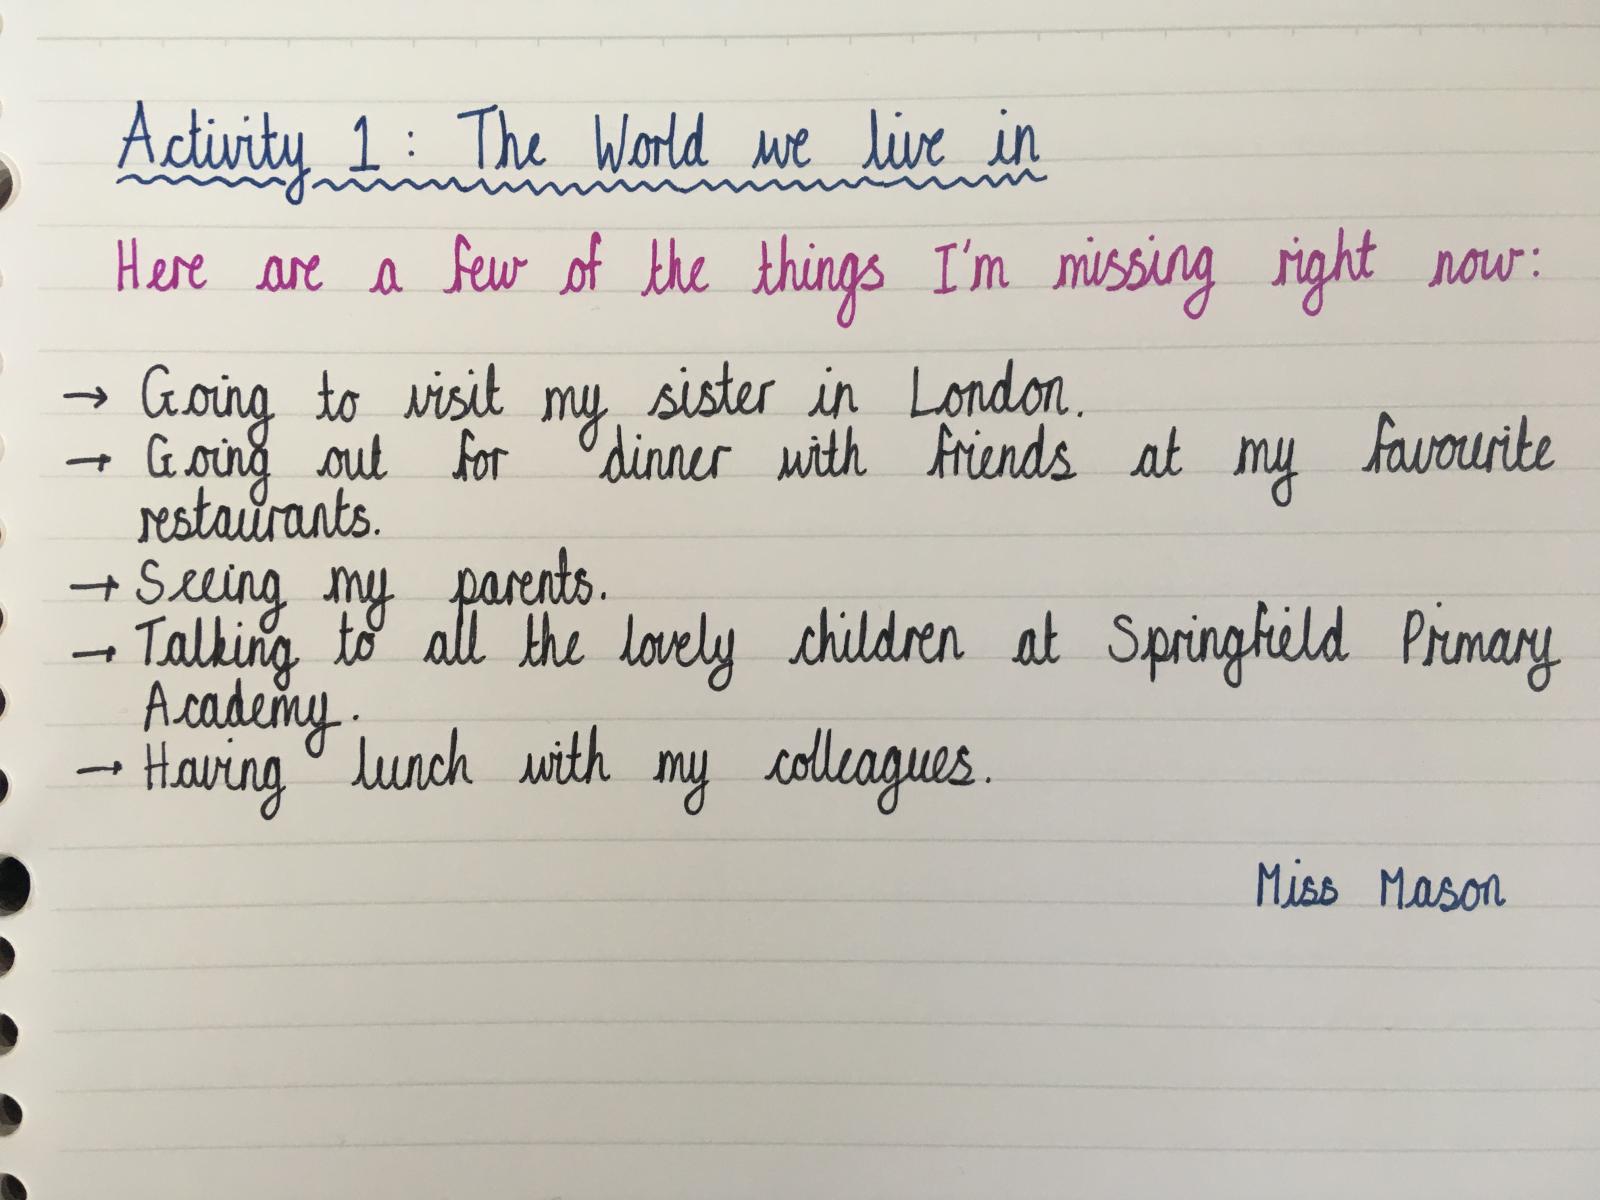 Activity 1: The World we live in
Here are a few of the things I'm missing right now:
→ Going to visit my sister in London.
→ Going out for dinner with friends at my favourite
restaurants.
→ Seeing my parents.
→ Talking to all the lovely children at Springfield Primary
Academy.
→ Having lunch with my colleagues.
Miss Mason